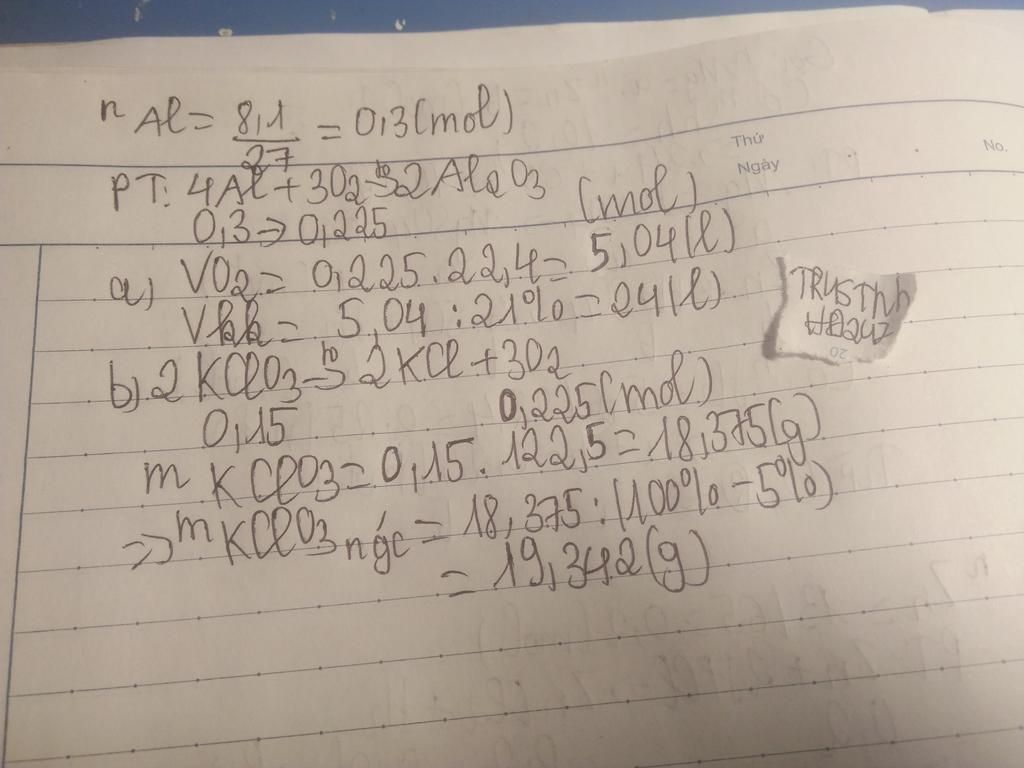 n Al = 8,1 / 27 = 0,3 (mol)
Thứ
Ngày
No.
PT: 4Al + 3O2 -to-> 2Al2O3
0,3 → 0,225 (mol)
a) VO2 = 0,225.22,4 = 5,04 (l)
Vkk = 5,04 : 21% = 24 (l)
b) 2KClO3 -to-> 2KCl + 3O2
0,15 0,225 (mol)
m KClO3 = 0,15.122,5 = 18,375 (g)
=> m KClO3 = 18,375 : (100% - 5%)
= 19,342 (g)
20